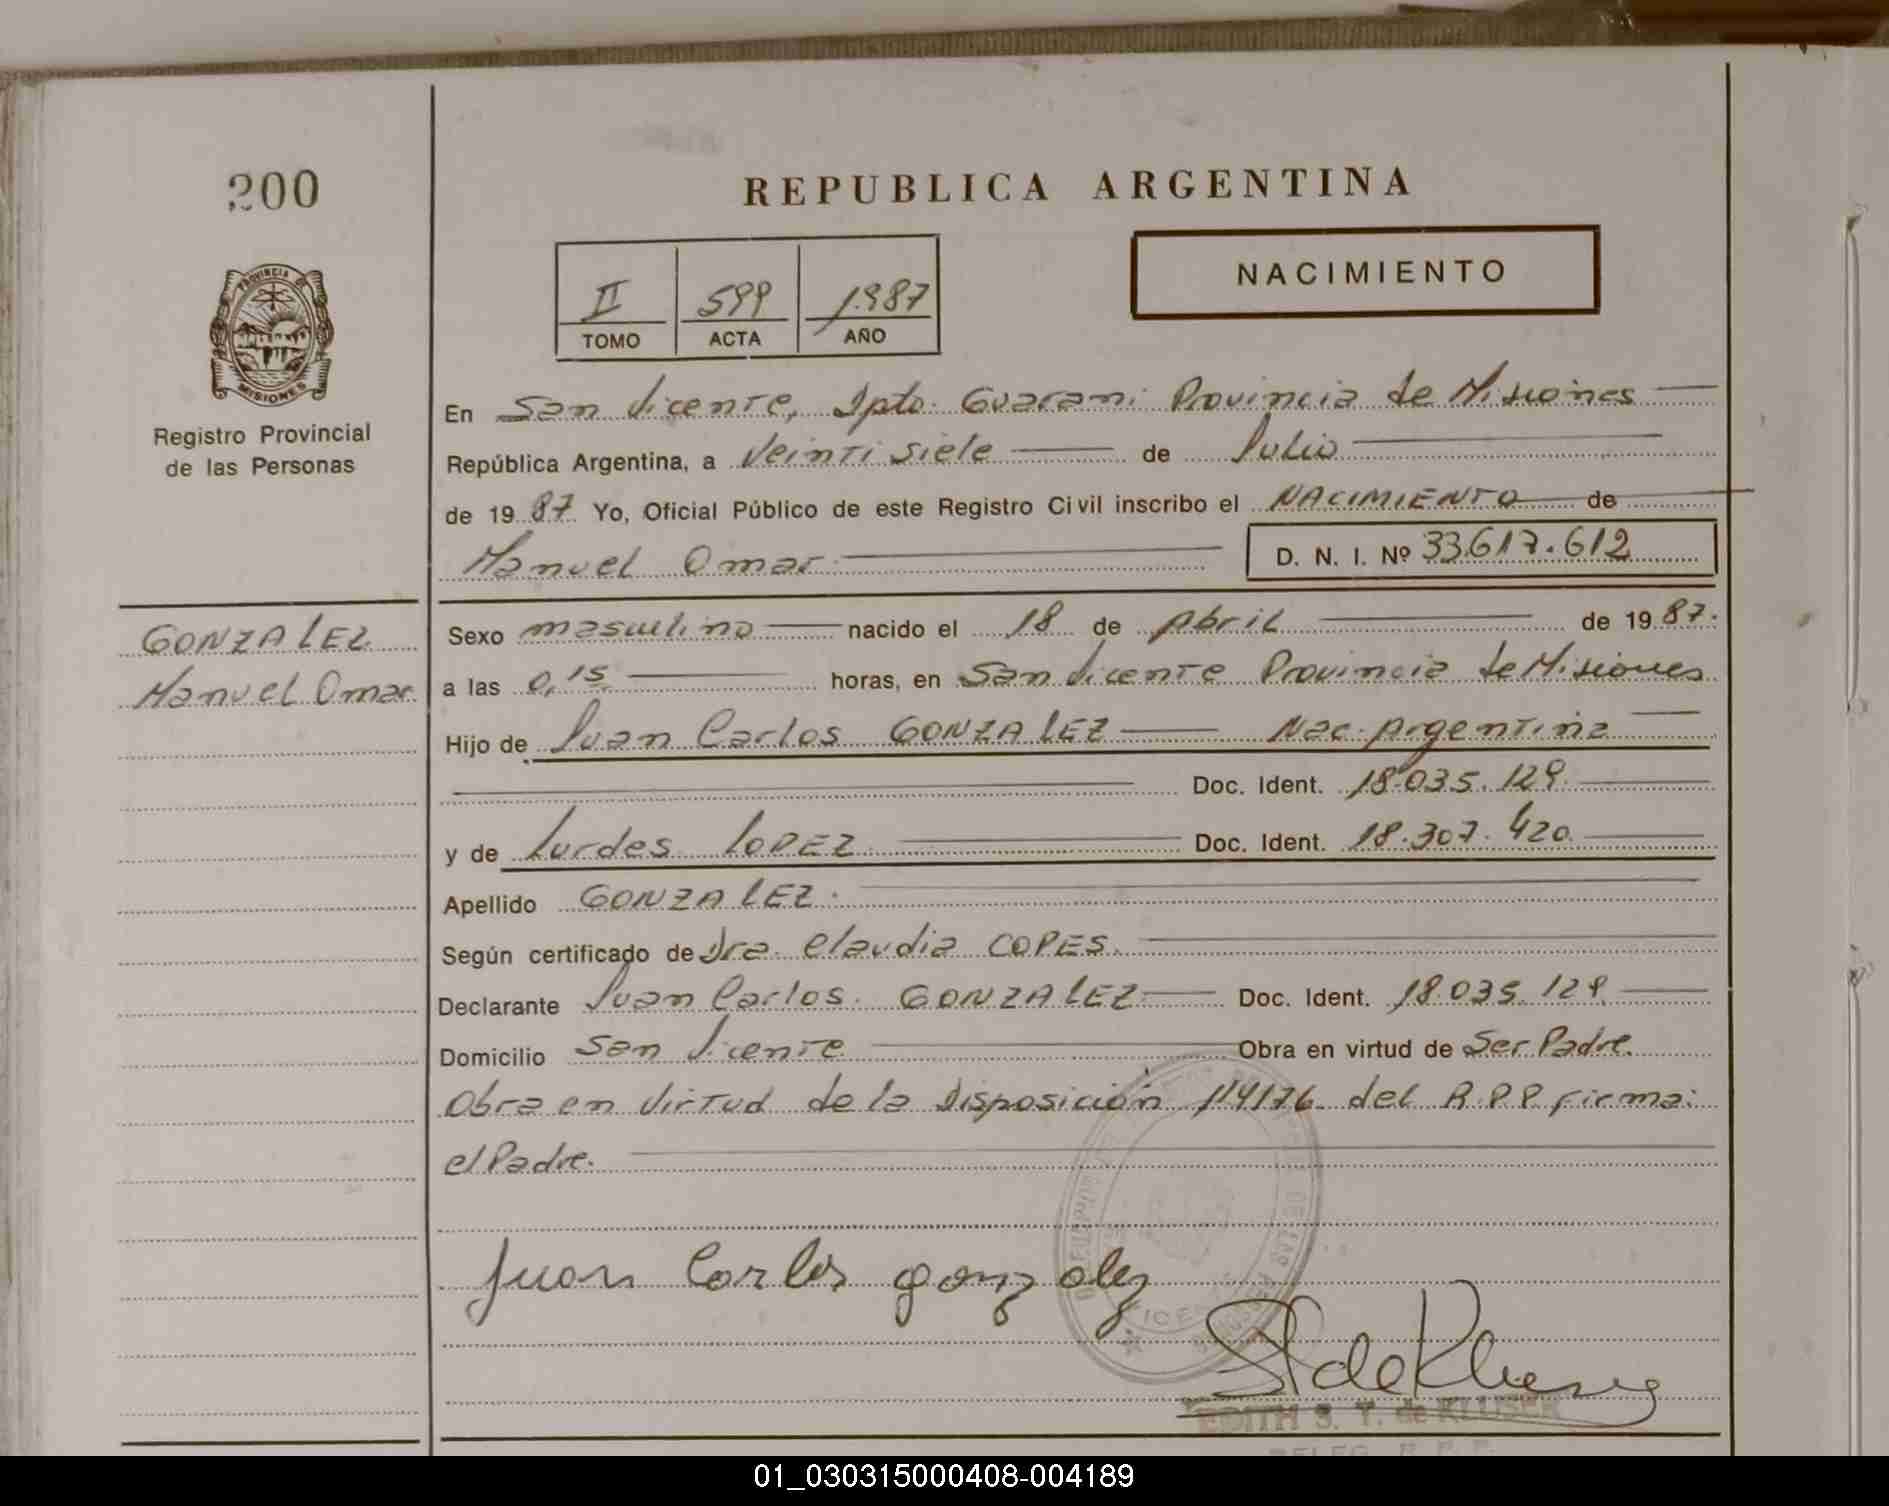 200
REPUBLICA ARGENTINA
PROVINCIA DE
MISIONES
Registro Provincial
de las Personas
II 599 1987
TOMO ACTA AÑO
NACIMIENTO
En San Vicente, Dpto. Guarani Provincia de Misiones
República Argentina, a Veinti siete de Julio
de 19 87 Yo, Oficial Público de este Registro Civil inscribo el NACIMIENTO de
Manuel Omar D. N. I. Nº 33.617.612
GONZALEZ
Manuel Omar
Sexo masculino nacido el 18 de Abril de 19 87.
a las 0,15 horas, en San Vicente Provincia de Misiones
Hijo de Juan Carlos GONZALEZ Nac. Argentina
Doc. Ident. 18.035.129.
y de Lurdes LOPEZ Doc. Ident. 18.307.420.
Apellido GONZALEZ.
Según certificado de Dra. Claudia COPES.
Declarante Juan Carlos. GONZALEZ Doc. Ident. 18.035.129.
Domicilio San Vicente Obra en virtud de Ser Padre.
Obra en Virtud de la Disposición 114/76 del R.P.P firma:
el Padre.
Juan Carlos gonzalez
EDITH S. T. de KLUSER
DELEG. R. P. P.
01_030315000408-004189